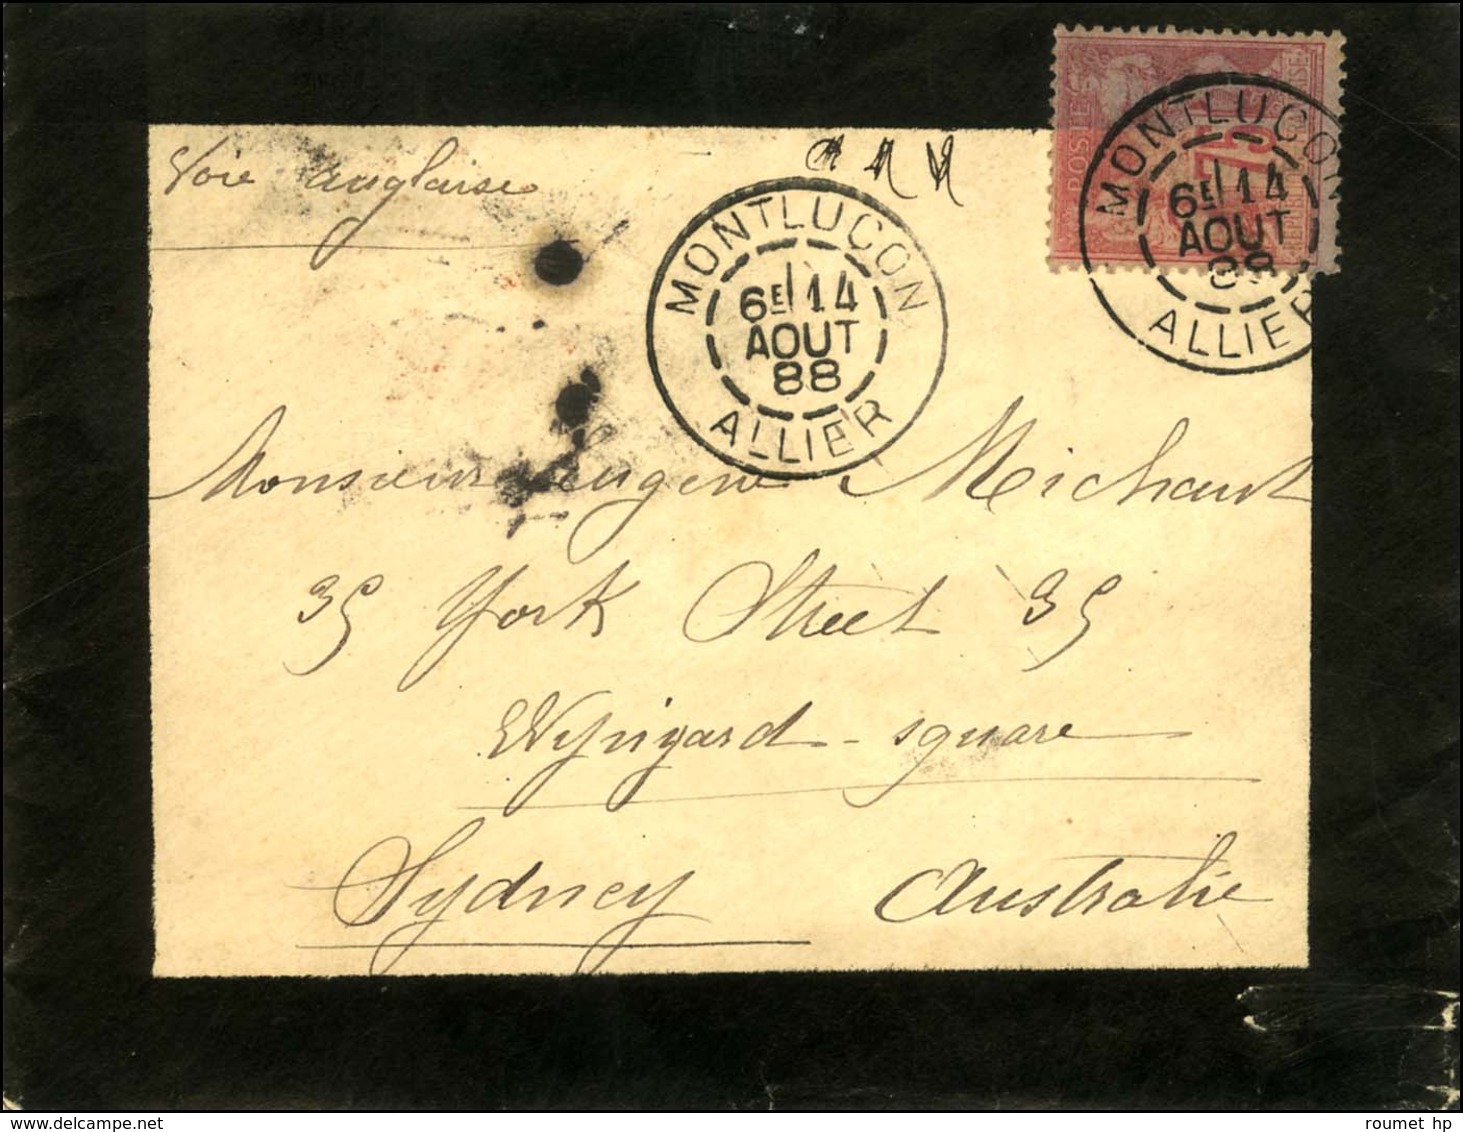 Voie anglaise
MONTLUCON
6E 14
AOUT
88
ALLIER
POSTES
75
MONTLUCON
6E 14
AOUT
88
ALLIER
Monsieur Eugene Michaut
35 York Street 35
Wynyard-square
Sydney Australie
roumet hp